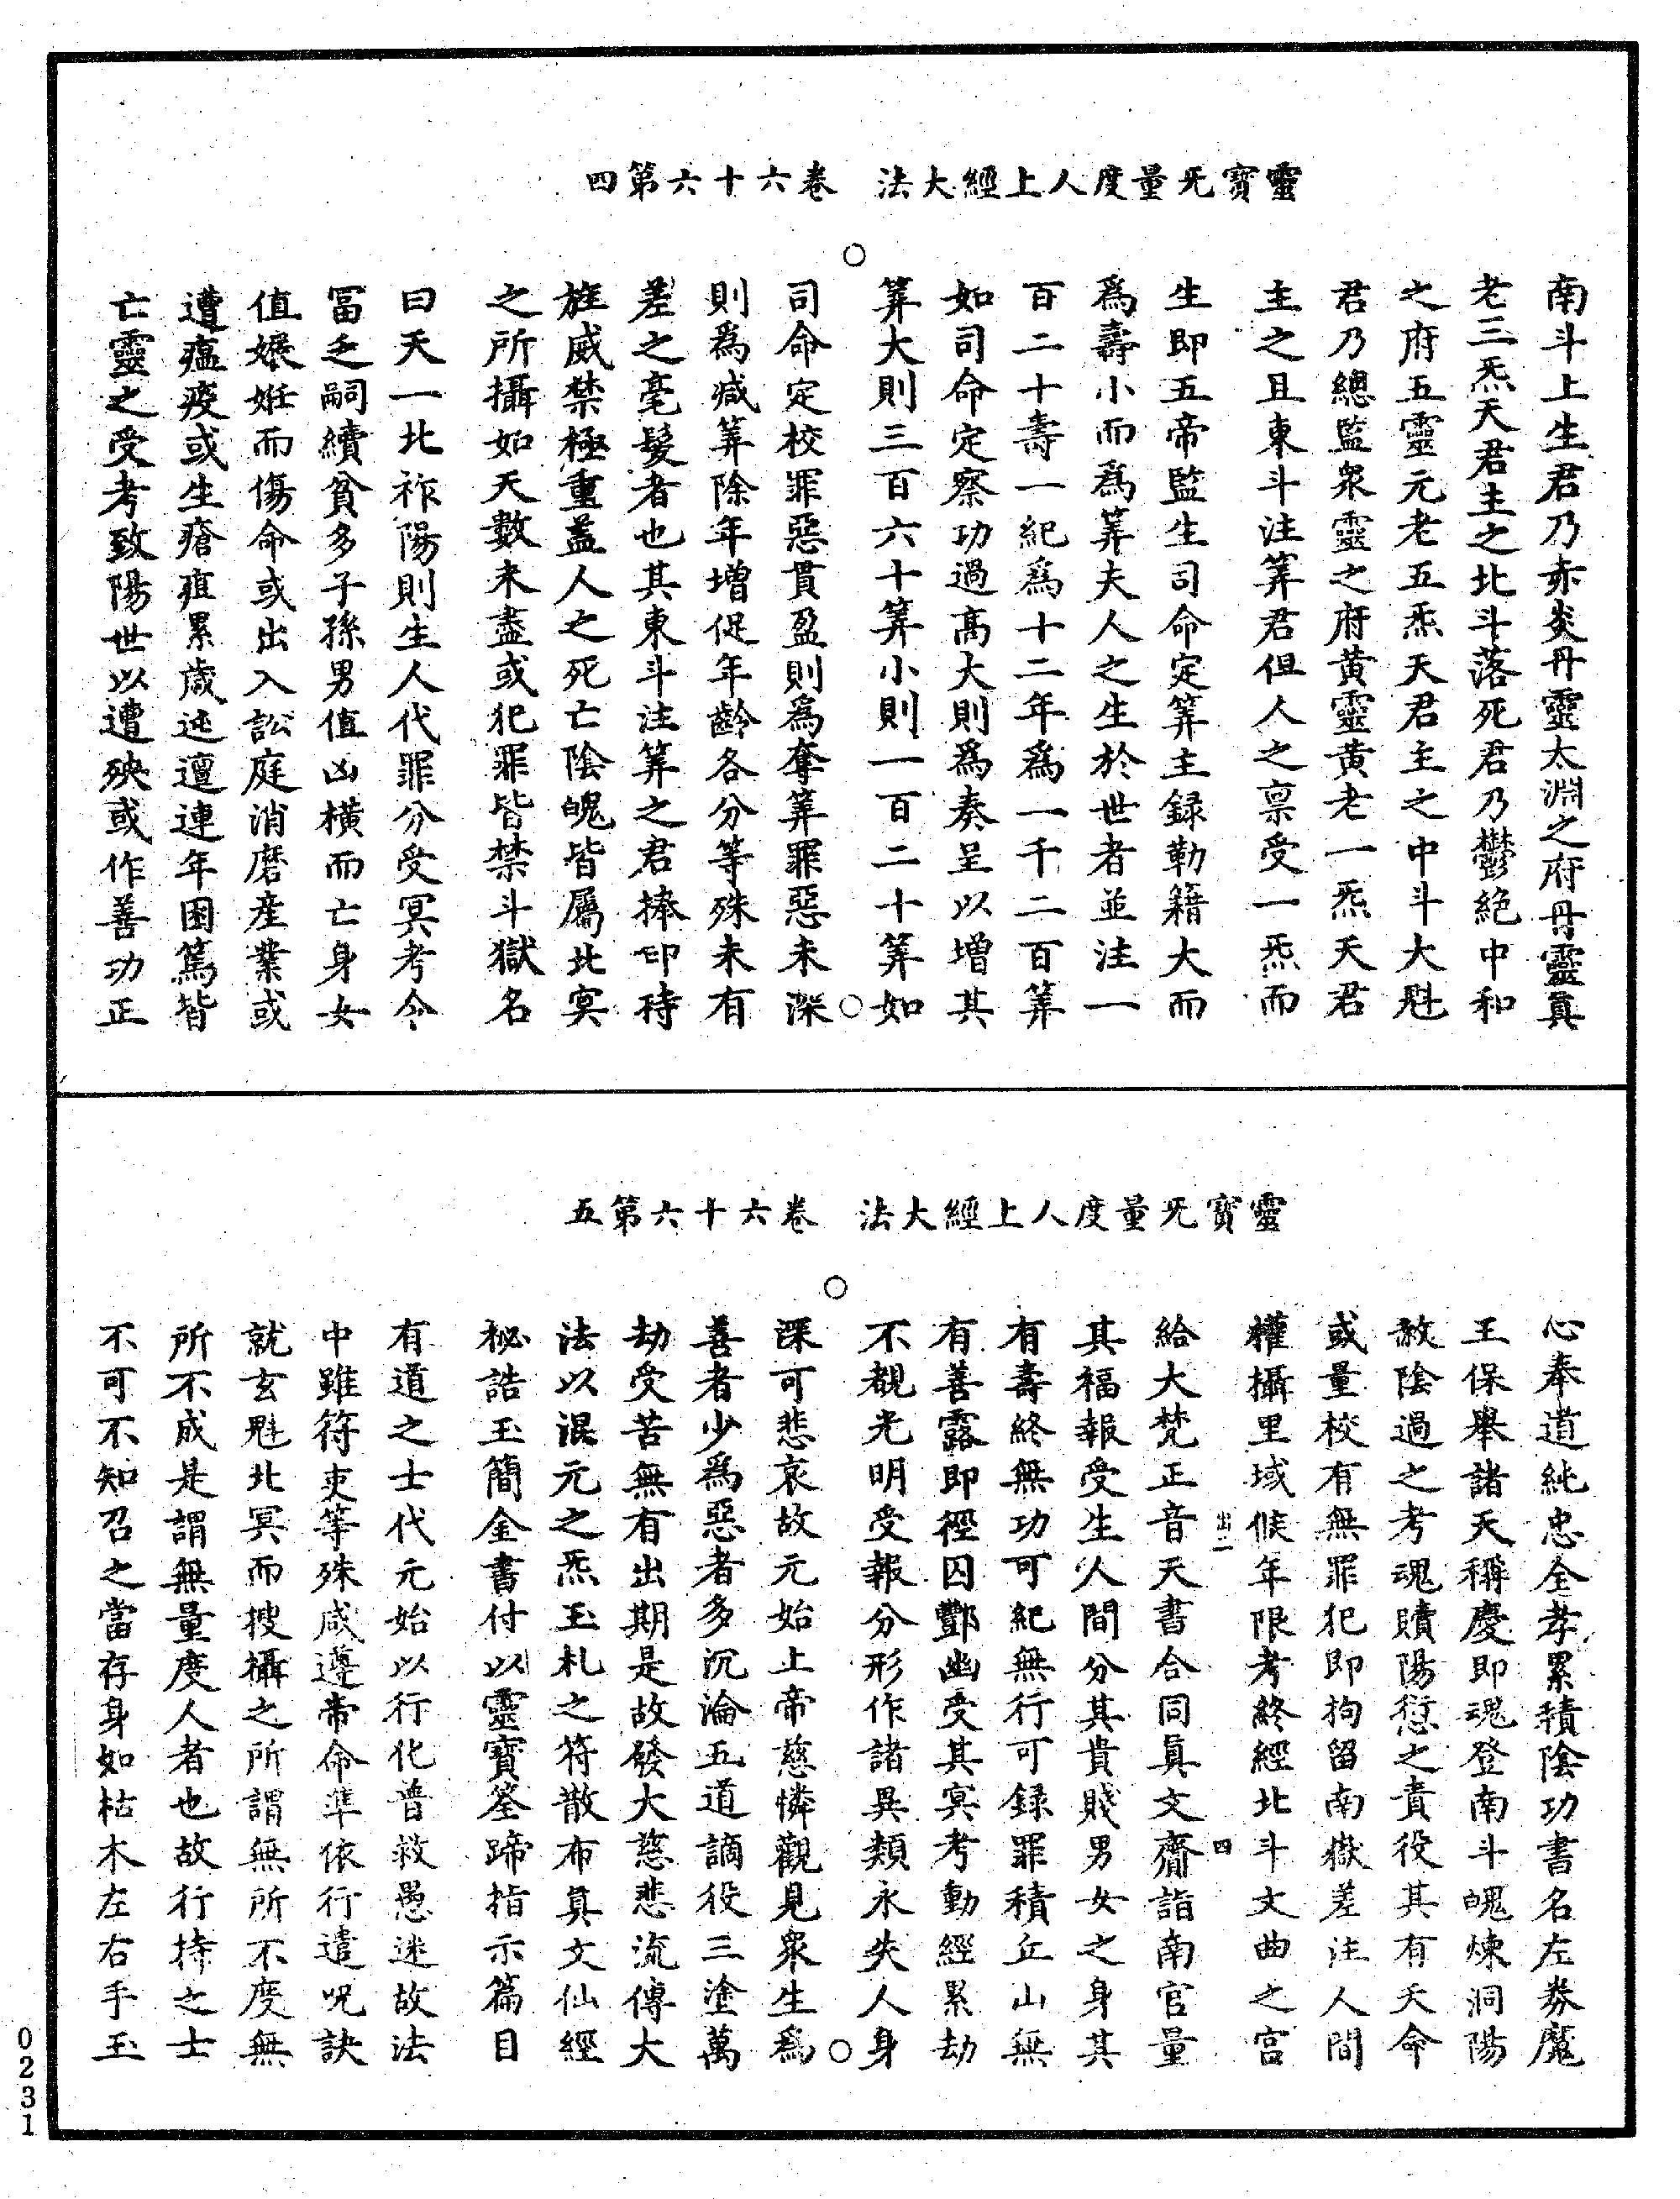 靈寶旡量度人上經大法　卷六十六第四
南斗上生君乃赤炎丹靈太淵之府丹靈眞
老三炁天君主之北斗落死君乃鬱絶中和
之府五靈元老五炁天君主之中斗大魁
君乃總監衆靈之府黄靈黄老一炁天君
主之且東斗注筭君但人之禀受一炁而
生即五帝監生司命定筭主録勒籍大而
爲壽小而爲筭夫人之生於世者並注一
百二十壽一紀爲十二年爲一千二百筭
如司命定察功過高大則爲奏呈以增其
筭大則三百六十筭小則一百二十筭如
司命定校罪惡貫盈則爲奪筭罪惡未深
則爲减筭除年增促年齡各分等殊未有
差之毫髮者也其東斗注筭之君捧印持
旌威禁極重盖人之死亡陰魄皆屬北冥
之所攝如天數未盡或犯罪皆禁斗獄名
曰天一北祚陽則生人代罪分受冥考令
冨乏嗣續貧多子孫男值凶橫而亡身女
值娠姙而傷命或出入訟庭消磨産業或
遭瘟疫或生瘡疽累歲迍邅連年困篤皆
亡靈之受考致陽世以遭殃或作善功正
靈寶旡量度人上經大法　卷六十六第五
心奉道純忠全孝累積陰功書名左券魔
王保舉諸天稱慶即魂登南斗魄煉洞陽
赦陰過之考魂贖陽愆之責役其有夭命
或量校有無罪犯即拘留南嶽差注人間
權攝里域候年限考終經北斗文曲之宫
出二　四
給大梵正音天書合同眞文齎詣南宫量
其福報受生人間分其貴賤男女之身其
有壽終無功可紀無行可録罪積丘山無
有善露即徑囚酆幽受其冥考動經累劫
不覩光明受報分形作諸異類永失人身
深可悲哀故元始上帝慈憐觀見衆生爲
善者少爲惡者多沉淪五道謫役三塗萬
劫受苦無有出期是故發大慈悲流傳大
法以混元之炁玉札之符散布眞文仙經
秘誥玉簡金書付以靈寳筌蹄指示篇目
有道之士代元始以行化普救愚迷故法
中雖符吏等殊咸遵帝命準依行遣呪訣
就玄魁北冥而搜攝之所謂無所不度無
所不成是謂無量度人者也故行持之士
不可不知召之當存身如枯木左右手玉
0231